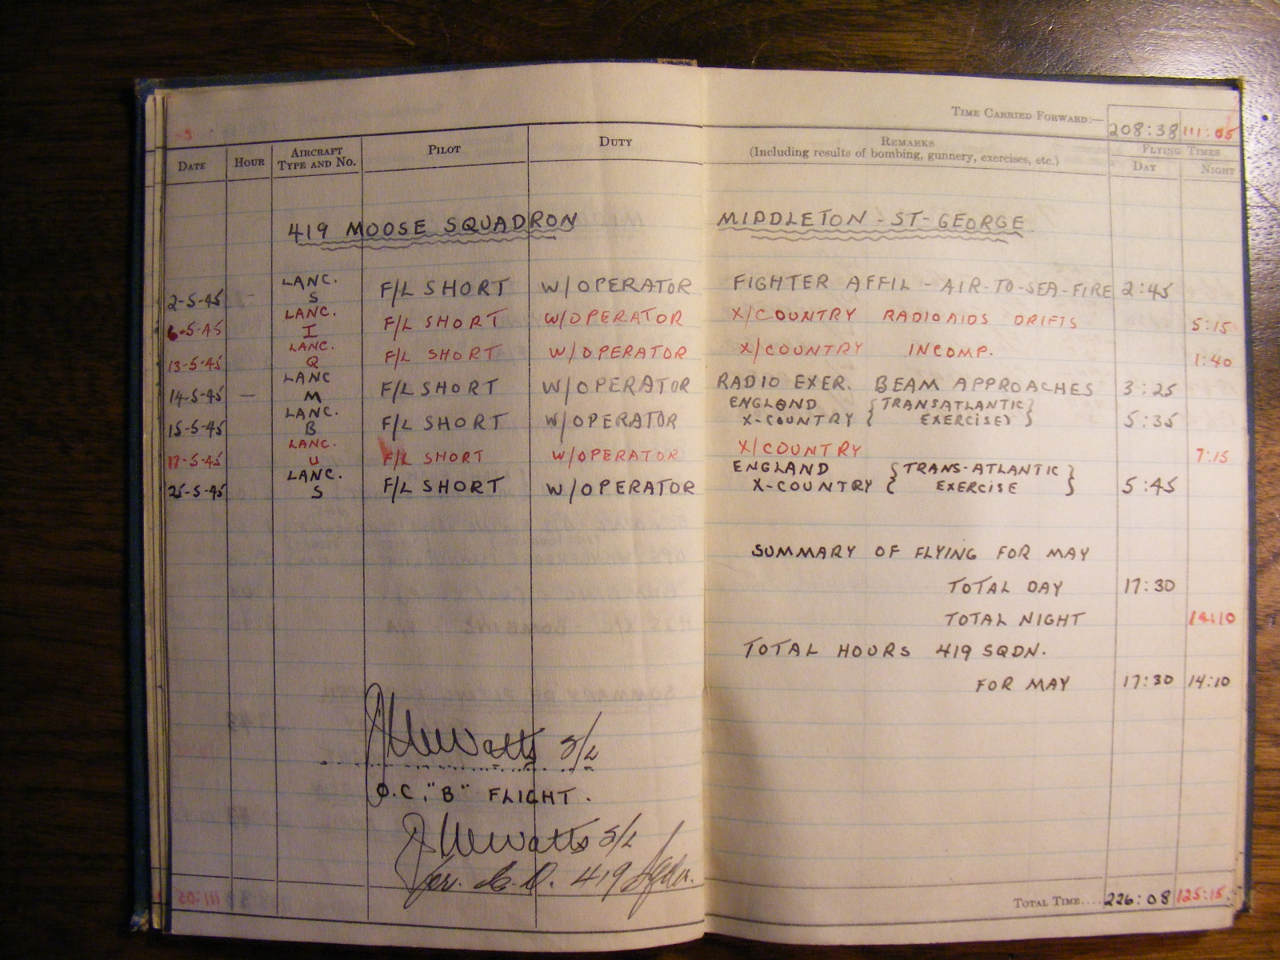 TIME CARRIED FORWARD:— 208:38 111:05
DATE HOUR AIRCRAFT TYPE AND NO. PILOT DUTY REMARKS (Including results of bombing, gunnery, exercises, etc.) FLYING TIMES DAY NIGHT
419 MOOSE SQUADRON MIDDLETON-ST-GEORGE
2-5-45 — LANC. S F/L SHORT W/OPERATOR FIGHTER AFFIL - AIR-TO-SEA-FIRE 2:45
6-5-45 LANC. I F/L SHORT W/OPERATOR X/COUNTRY RADIO AIDS DRIFTS 5:15
13-5-45 LANC. Q F/L SHORT W/OPERATOR X/COUNTRY INCOMP. 1:40
14-5-45 — LANC M F/L SHORT W/OPERATOR RADIO EXER. BEAM APPROACHES 3:25
15-5-45 LANC. B F/L SHORT W/OPERATOR ENGLAND X-COUNTRY {TRANSATLANTIC EXERCISES} 5:35
17-5-45 LANC. U F/L SHORT W/OPERATOR X/COUNTRY 7:15
25-5-45 LANC. S F/L SHORT W/OPERATOR ENGLAND X-COUNTRY {TRANS-ATLANTIC EXERCISE} 5:45
SUMMARY OF FLYING FOR MAY
TOTAL DAY 17:30
TOTAL NIGHT 14:10
TOTAL HOURS 419 SQDN.
FOR MAY 17:30 14:10
Watts S/L
O.C. "B" FLIGHT.
Watts S/L
for C.O. 419 Sqdn.
TOTAL TIME.... 226:08 125:15